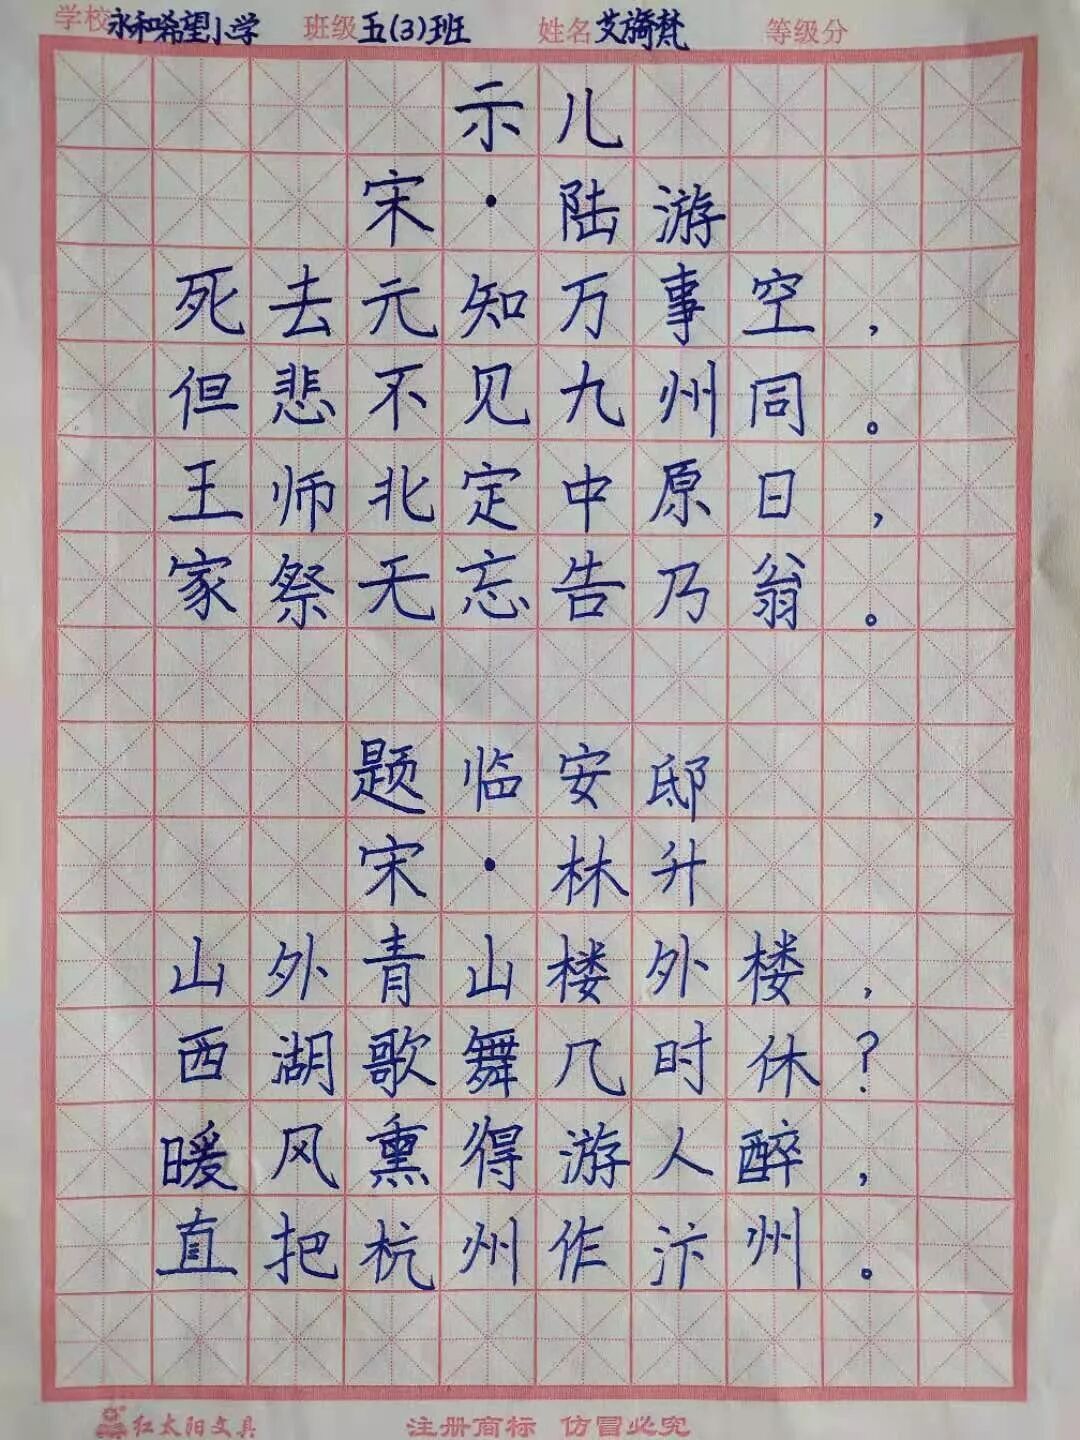 学校永和希望小学 班级五(3)班 姓名艾旖梵 等级分
示儿
宋·陆游
死去元知万事空，
但悲不见九州同。
王师北定中原日，
家祭无忘告乃翁。
题临安邸
宋·林升
山外青山楼外楼，
西湖歌舞几时休？
暖风熏得游人醉，
直把杭州作汴州。
红太阳文具 注册商标 仿冒必究